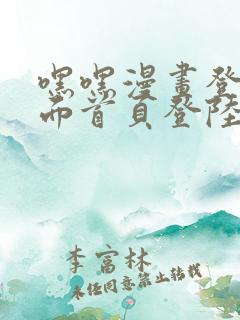 嘿嘿漫畫登
而首頁登陸
李富林
未经同意禁止转载